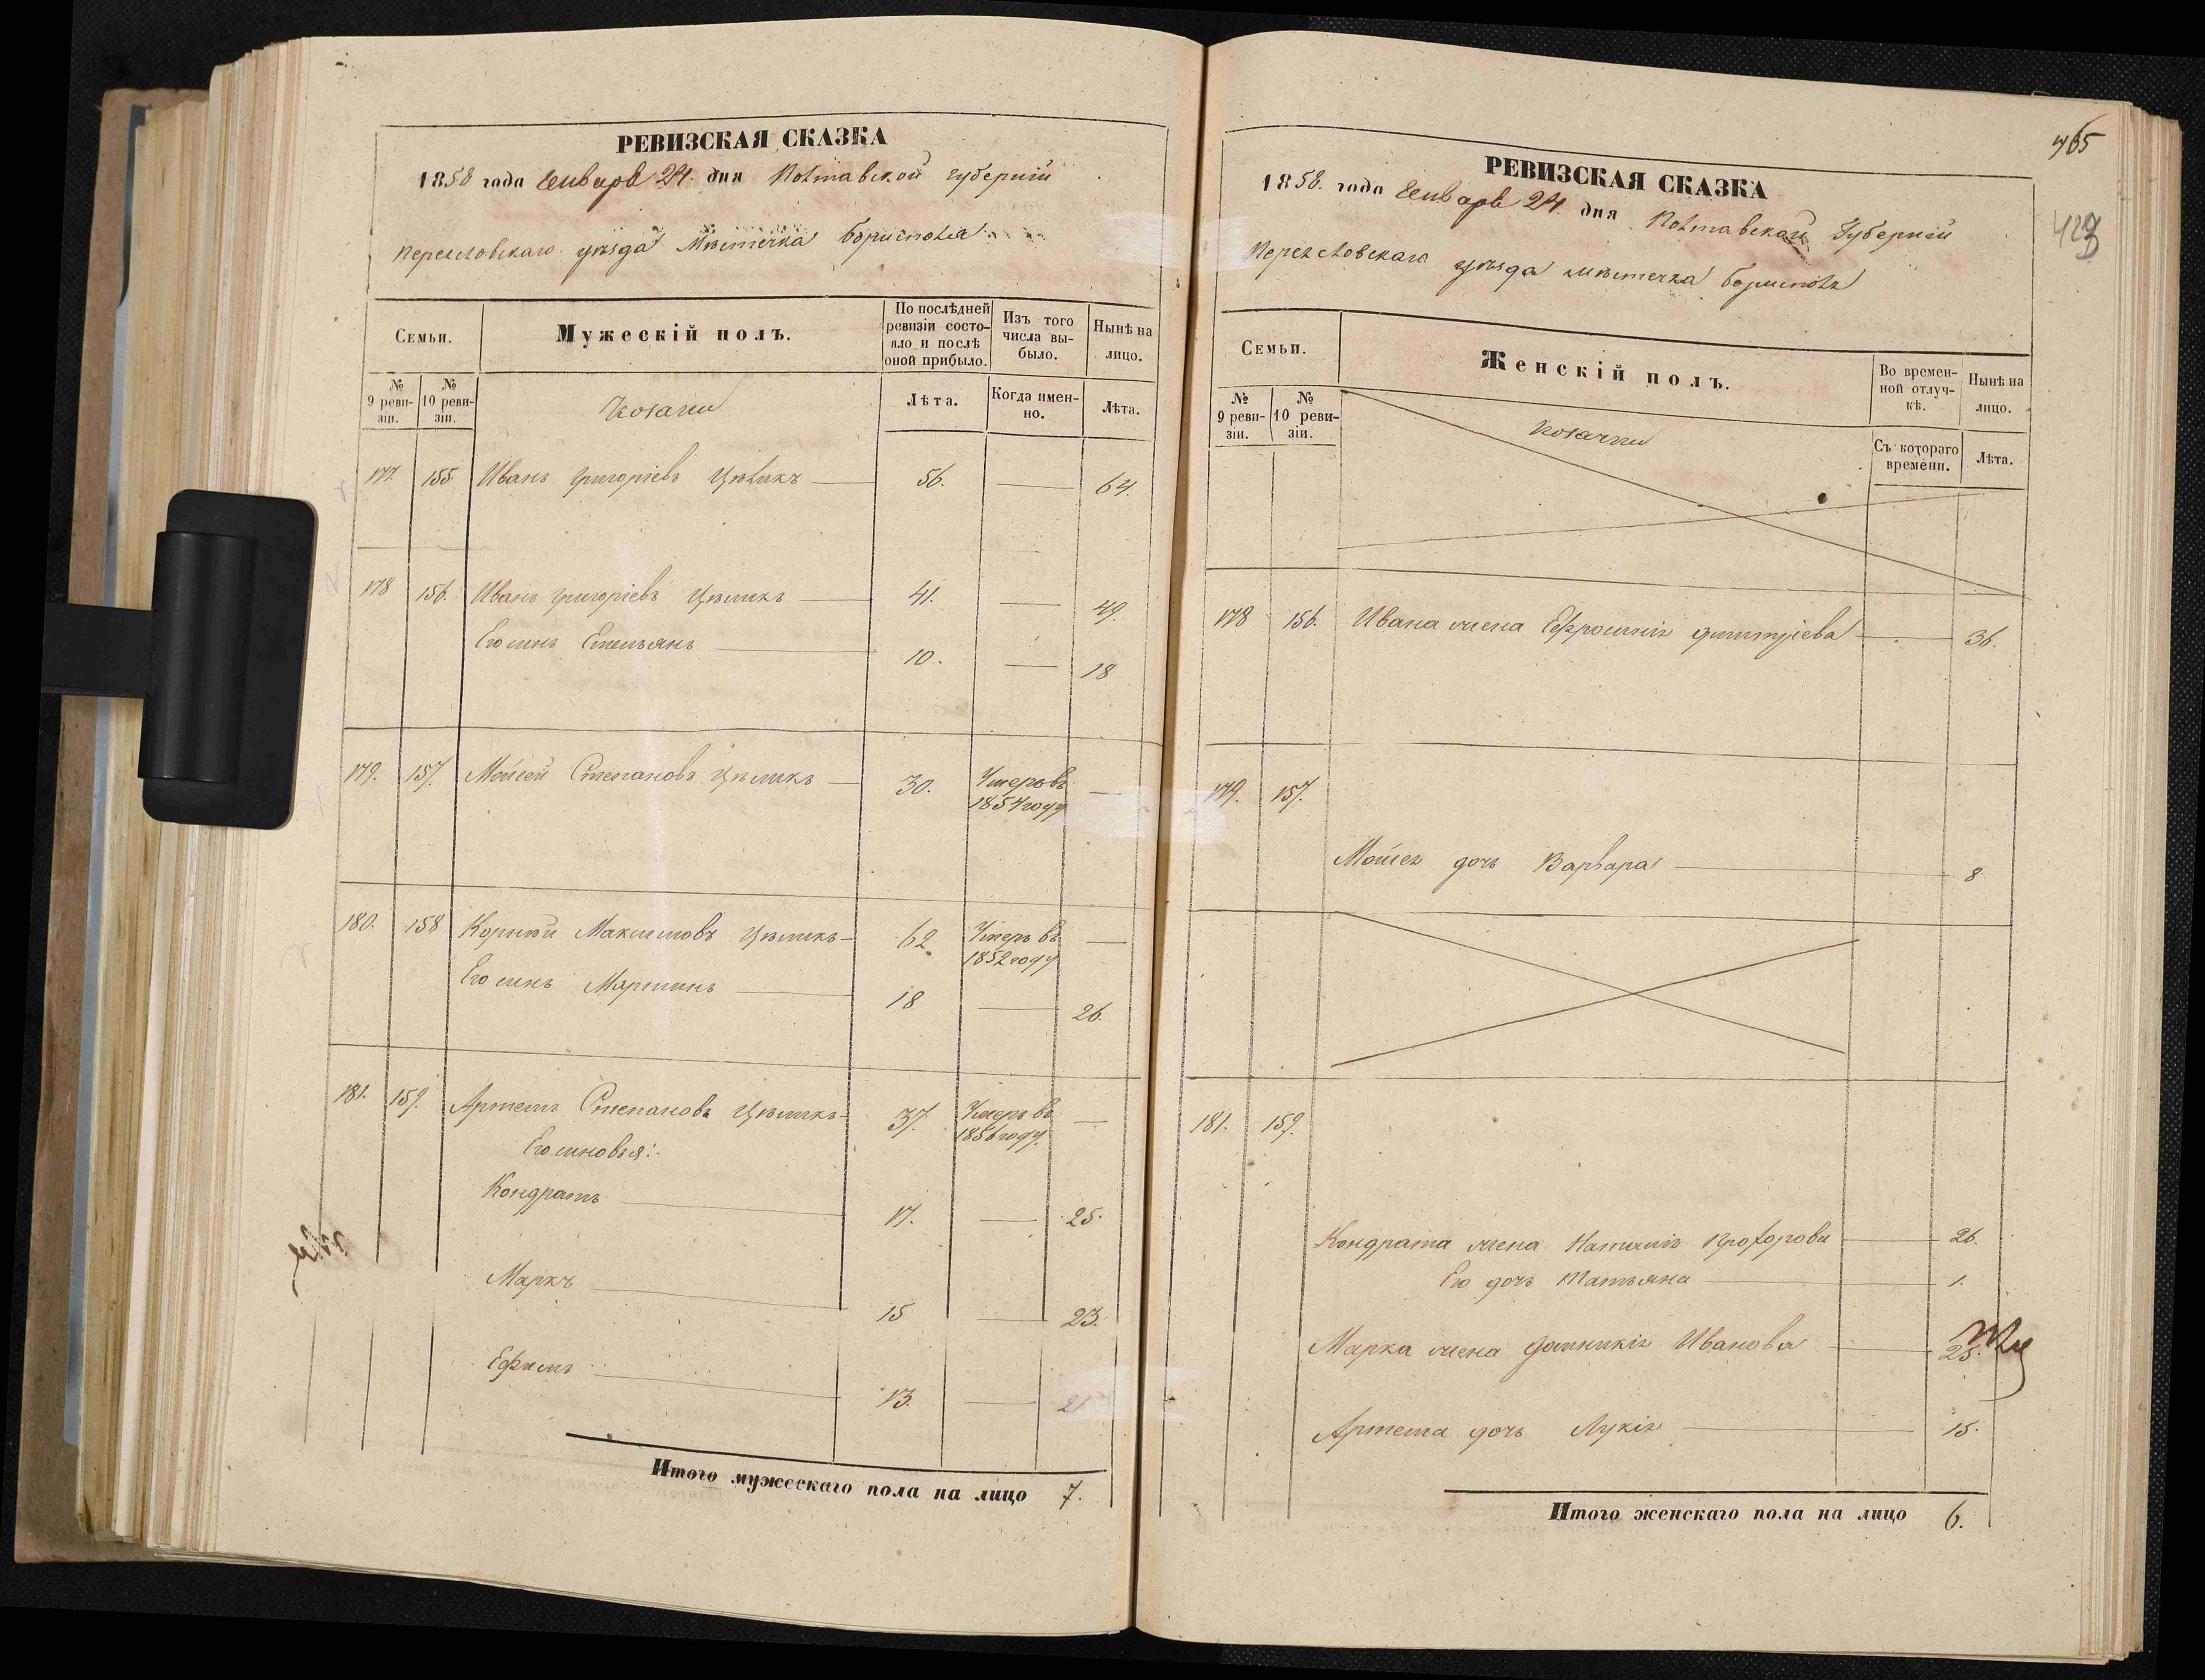 РЕВИЗСКАЯ СКАЗКА
1858 года Генваря 24. дня Полтавской губерніи
Переяславскаго уѣзда Мѣстечка Борисполя
Семьи.
Мужескій полъ.
По послѣдней ревизіи состояло и послѣ оной прибыло.
Изъ того числа выбыло.
Нынѣ на лицо.
№ 9 ревизіи.
№ 10 ревизіи.
Козаки
Лѣта.
Когда именно.
Лѣта.
177. 155. Иванъ Григоріевъ Цѣликъ 56. — 64.
178 156. Иванъ Григоріевъ Цѣликъ 41. — 49.
Его сынъ Емельянъ 10. — 18
179. 157. Мойсей Степановъ Цѣликъ 30. Умеръ въ —
1854 году
180. 158 Корнѣй Максимовъ Цѣликъ 62. Умеръ въ —
1852 году
Его сынъ Мартинъ 18 — 26.
181. 159. Артемъ Степановъ Цѣликъ 37. Умеръ въ —
1856 году.
Его сыновья:
Кондратъ 17. — 25.
Маркъ 15 — 23.
Ефимъ 13. — 21
Итого мужескаго пола на лицо 7.
465
423
РЕВИЗСКАЯ СКАЗКА
1858. года Генваря 24. дня Полтавской Губерніи
Переяславскаго уѣзда мѣстечка Борисполя
Семьи.
Женскій полъ.
Во временной отлучкѣ.
Нынѣ на лицо.
№ 9 ревизіи.
№ 10 ревизіи.
Козачки
Съ котораго времени.
Лѣта.
178 156. Ивана жена Ефросинія Дмитріева 36.
179. 157.
Мойсея дочь Варвара 8
181. 159.
Кондрата жена Наталія Прохорова 26.
Его дочь Татьяна 1.
Марка жена Домникія Иванова 25.
Артема дочь Лукія 15.
Итого женскаго пола на лицо 6.